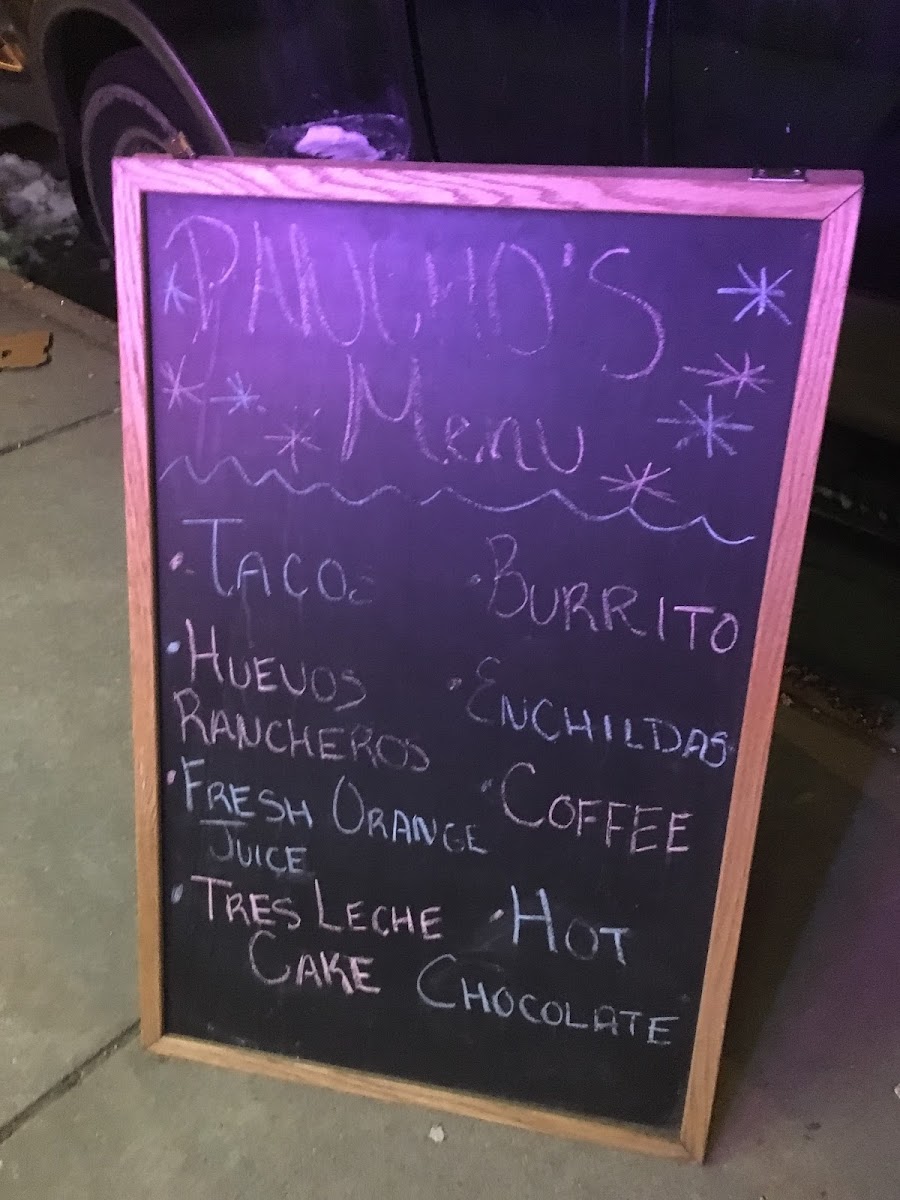 PANCHO'S
Menu
· TACOS
· BURRITO
· HUEVOS
RANCHEROS
· ENCHILDAS
· FRESH ORANGE
JUICE
· COFFEE
· TRES LECHE
CAKE
· HOT
CHOCOLATE